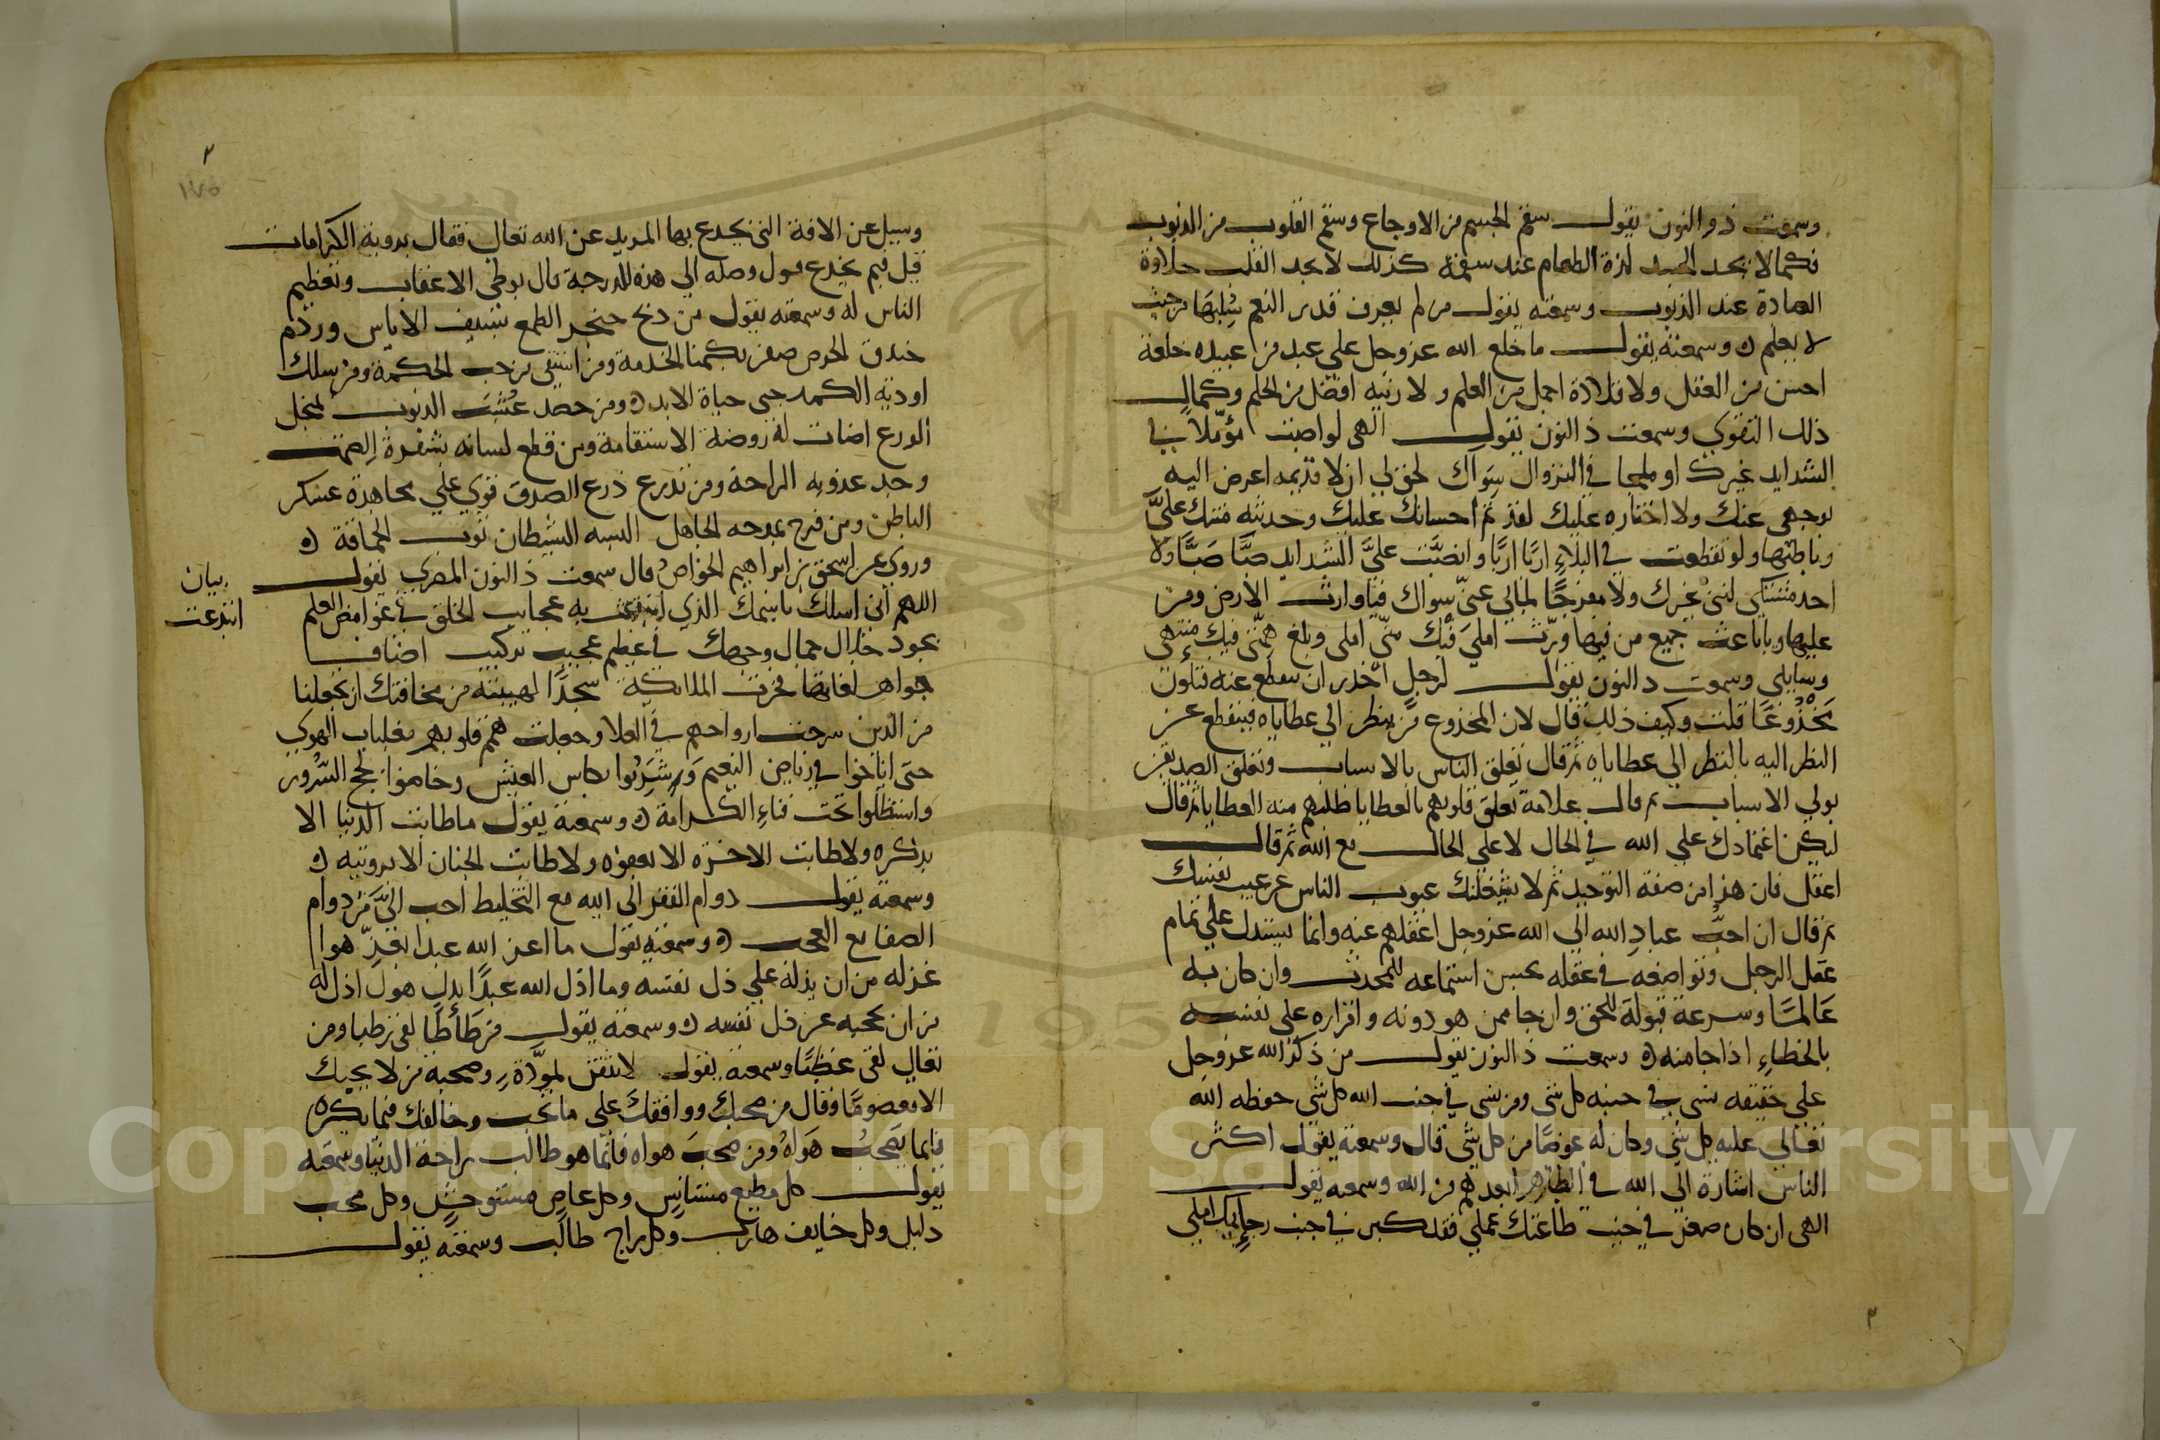 وسمعت ذو النون يقول سقم الجسم من الاوجاع وسقم القلوب من الذنوب
فكما لا يجد الجسد لذة الطعام عند سقمه كذلك لا يجد القلب حلاوة
العبادة عند الذنوب وسمعته يقول من لم يعرف قدر النعم سُلبَها من حيث
لا يعلم ه وسمعته يقول ما خلع الله عز وجل على عبد من عبيده خلعة
احسن من العقل ولا قلادة اجمل من العلم ولا زينه افضل من الحلم وكمال
ذلك التقوي وسمعت ذ النون يقول الهى لو اصبت مؤملا في
الشدايد غيرك او ملجا في النزوال سواك لحق لي ان لا قديمه اعرض اليه
بوجهى عنك ولا اختاره عليك لقد تم احسانك عليك وحدثيه منتك عليّ
وباطنها ولو تقطعت في البلاءِ اربًا اربًا وانصبَّت عليَّ الشدايد صبًّا صَبًّا ولا
احد مشتكى لبثى غيرك ولا مفرجًا لما بي عنيّ سواك فيا وارث الارض ومن
عليها ويا باعث جميع من فيها ورّث املي فيك منّي املى وبلغ همتى فيك منتهى
وسايلى وسمعت ذ النون يقول لرجل احذر ان تنقطع عنه فتكون
مخدُوعًا قلت وكيف ذلك قال لان المخدوع من ينظر الي عطاياه فينقطع عن
النظر اليه بالنظر الى عطاياه ثم قال تعلق الناس بالاسباب وتعلق الصديقين
بولي الاسباب ثم قال علامة تعلق قلوبهم بالعطايا طلبهم منه العطايا ثم قال
ليكن اعتمادك علي الله في الحال لا على الحال مع الله ثم قال
اعقل فان هذا من صفة التوحيد ثم لا يشغلنك عيوب الناس عن عيب نفسك
ثم قال ان احبَّ عبادِ الله الى الله عز وجل اعقلهم عنه وانما يستدل علي تمام
عقل الرجل وتواضعه في عقله بحسن استماعه للمحدث وان كان به
عَالمًا وسرعة قبولة للحق وان جا ممن هو دونه واقراره على نفسه
بالخطاءِ اذا جا منه ه وسمعت ذ النون يقول من ذكر الله عز وجل
على حقيقه نسى في جنبه كل شى ومن نسى في جنب الله كل شى حفظه الله
تعالى عليه كل شى وكان له عوضًا من كل شى قال وسمعته يقول اكثر
الناس اشارة الي الله في الظاهر ابعدهم من الله وسمعه يقول
الهى ان كان صغر في جنب طاعتك عملي فقد كبر في جنب رجايك املي
٣
٣
١٧٥
وسيل عن الافة التى يخدع بها المريد عن الله تعالي فقال بروية الكرامات
قيل فبم يخدع قبل وصله الي هذه الدرجة قال بوطى الاعقاب وتعظيم
الناس له وسمعته يقول من ذبح حنجر الطمع بسيف الاياس وردم
خندق الحرص ظفر بكيميا الخدمة ومن استقى من جب الحكمة ومن سلك
اودية الكمد جني حياة الابد ه ومن حصد عُشبَ الذنوب بمنجل
الورع اضات له روضة الاستقامة ومن قطع لسانه بشفرة الصمت
وجد عذوبه الراحة ومن تدرع درع الصدق قوي علي مجاهدة عسكر
الباطن ومن فرح بمدحه الجاهل البسه الشيطان ثوب الحماقة ه
وروي عن اسحق بن ابراهيم الخواص قال سمعت ذ النون المصري يقول
اللهم انى اسلك باسمك الذي ابتدعت به عجايب الخلق في غوامض العلم
بجود جلال جمال وجهك في عظيم عجيب تركيب اصناف
جواهر لغاتها فخرت الملايكة سجدًا لهيبته من مخافتك ان تجعلنا
من الذين سرحت ارواحهم في العلا وحطت همم قلوبهم مغلبات الهوي
حتى اناخوا في رياض النعيم وشربوا بكاس العيش وخاضوا لجج السُّرور
واستظلوا تحت فناءِ الكرامة ه وسمعته يقول ما طابت الدنيا الا
بذكره ولا طابت الاخره الا بعفوه ولا طابت الجنان الا برويته ه
وسمعته يقول دوام الفقر الى الله مع التخليط احب اليَّ من دوام
الصفا مع العجب ه وسمعته يقول ما اعز الله عبدا بعزّ هو
اعز له من ان يذله على ذل نفسه وما اذل الله عبدًا بذل هو اذل له
من ان يحجبه عن ذل نفسه ه وسمعته يقول من طَأطَا لقى رطبا ومن
تعالي لقى عطبًا وسمعته يقول لا تثقن لمودّة وصحبة من لا يحبك
الا معصومًا وقال من صحبك ووافقك على ما تحب وخالفك فيما يكره
فانما يصحب هَواهُ ومن صحبَ هواه فانما هو طالب راحة الدنيا وسمعته
يقول كل مطيع مستانس وكل عاص مستوحش وكل محب
ذليل وكل خايف هارب وكل راج طالب وسمعته يقول
بيان
ابتدعت
Copyright © King Saud University
1957